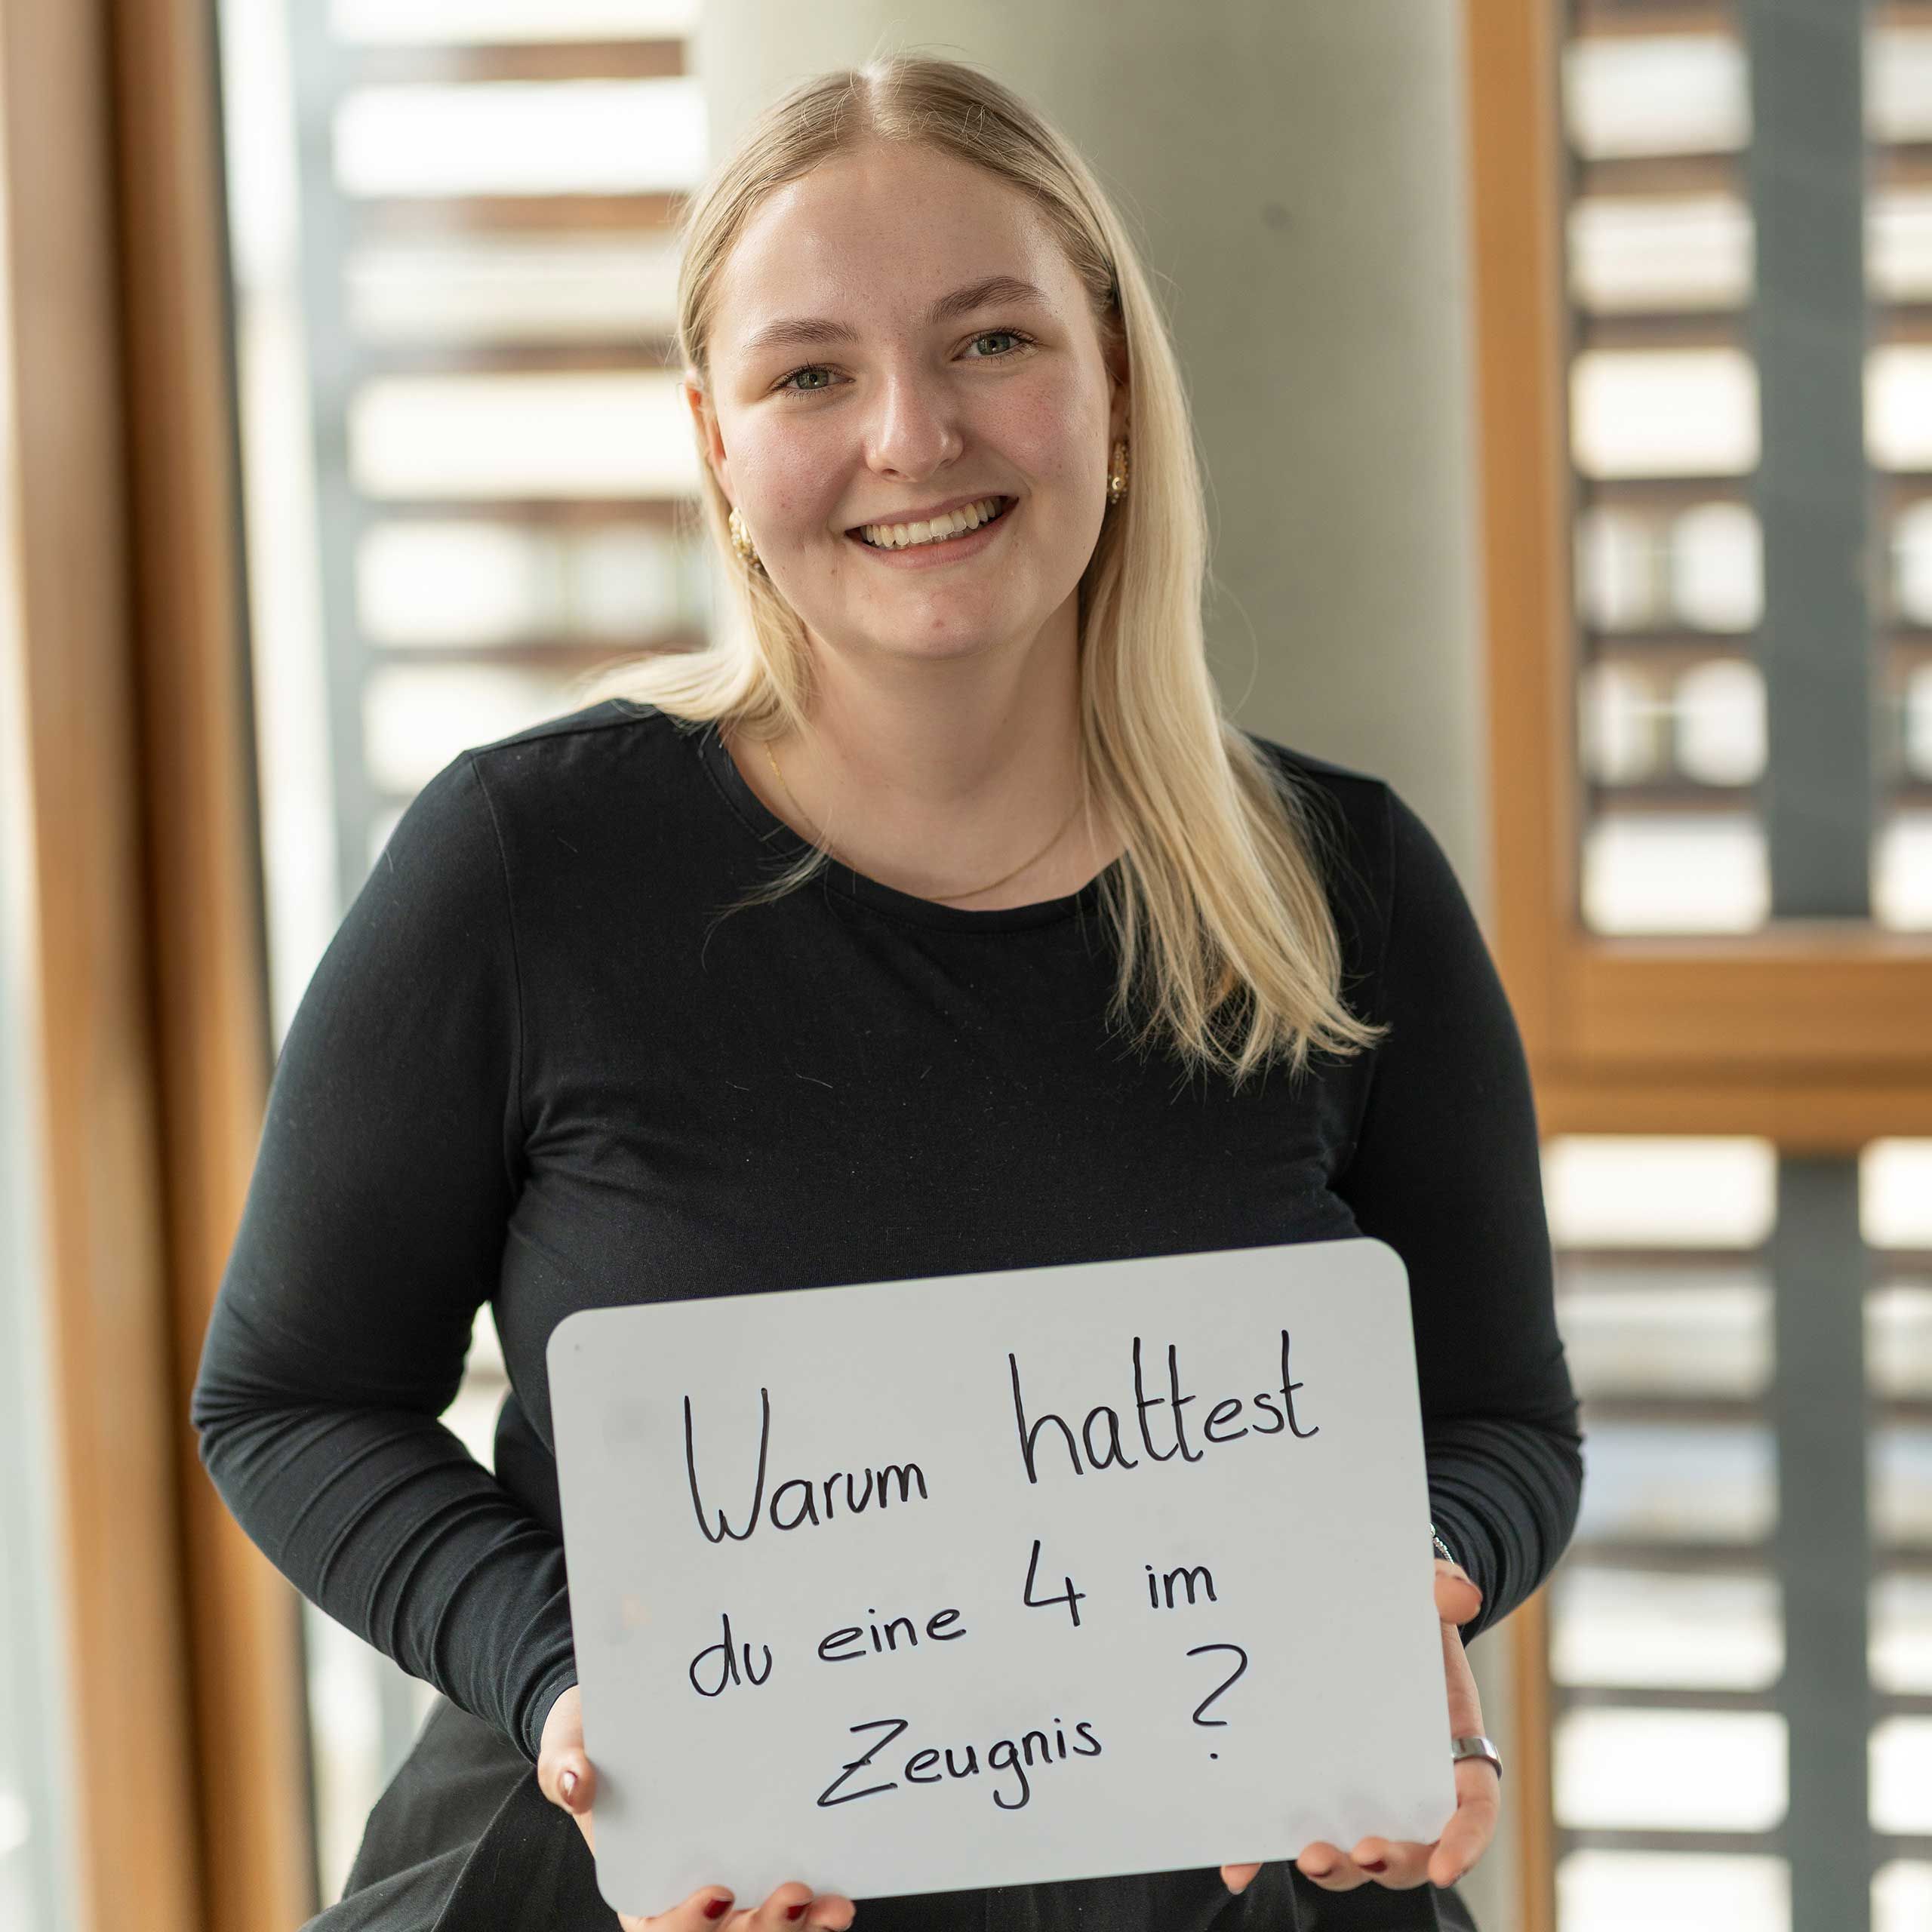 Warum hattest
du eine 4 im
Zeugnis ?